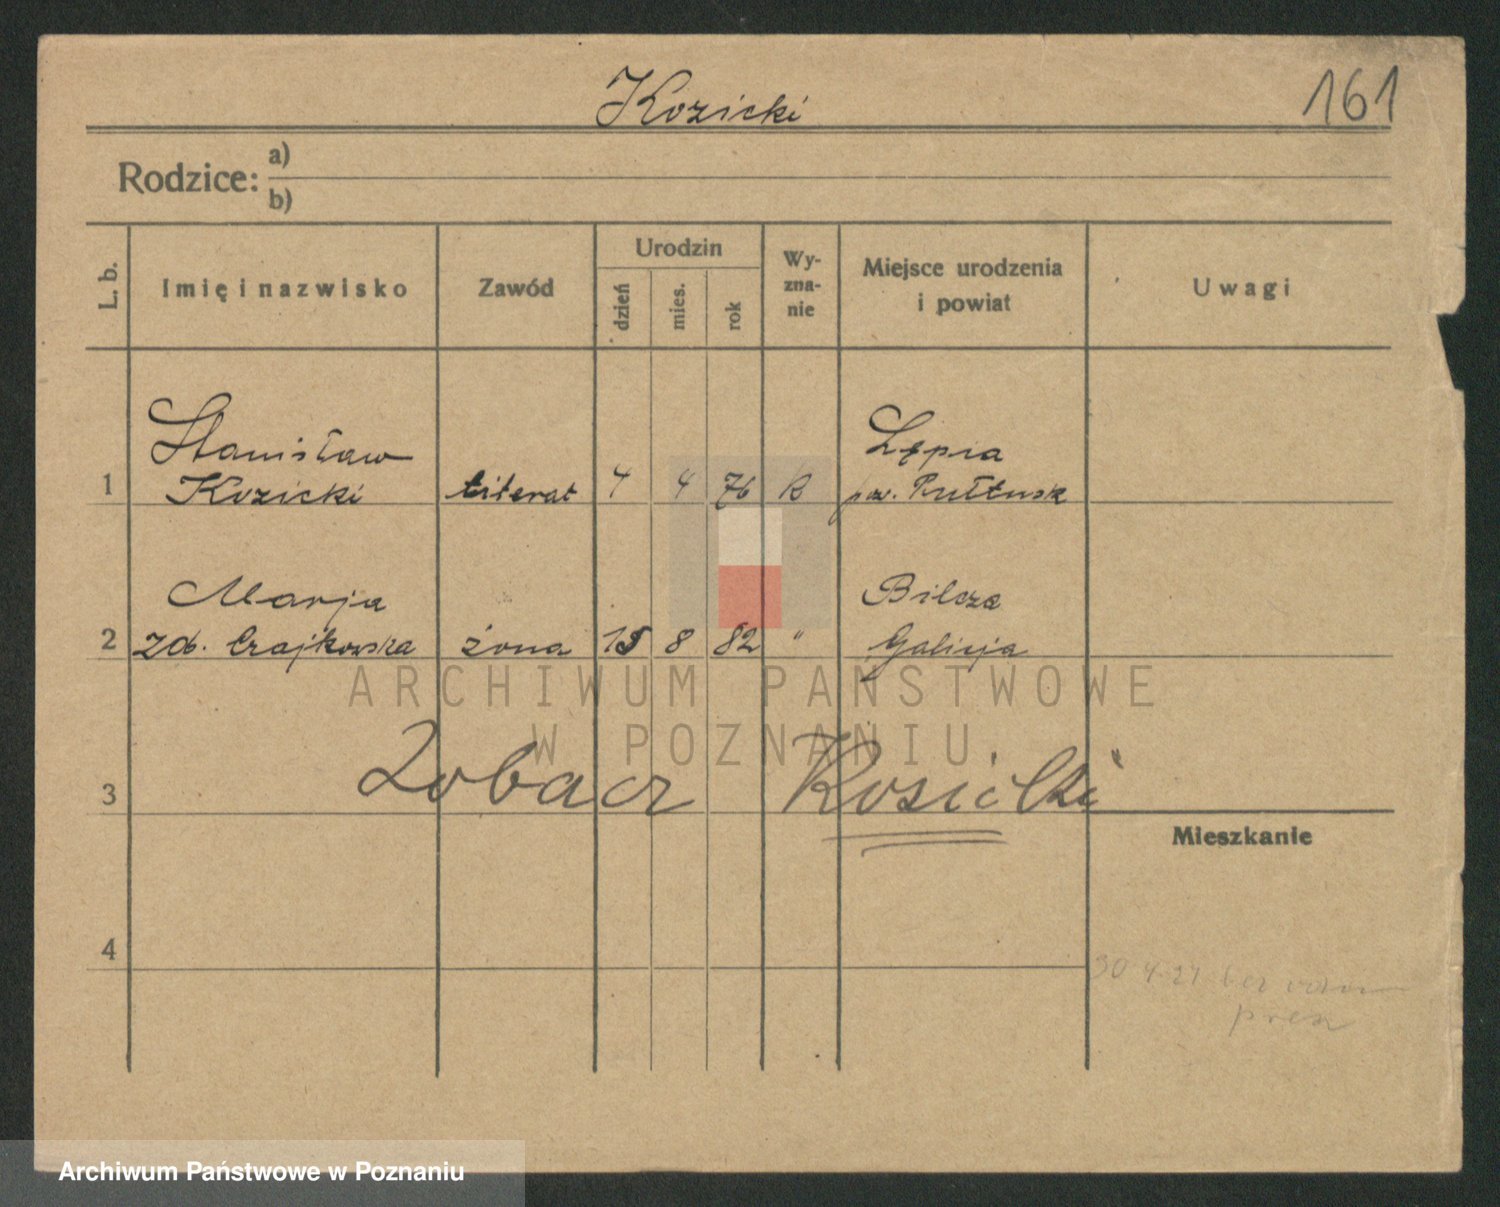 Kozicki
161
Rodzice:
a)
b)
L. b.
Imię i nazwisko
Zawód
Urodzin
dzień
mies.
rok
Wy-
zna-
nie
Miejsce urodzenia
i powiat
Uwagi
Stanisław
Kozicki
literat
4
4
76
R
Łępia
pow. Pułtusk
1
Marja
zd. Czajkowska
żona
15
8
82
"
Bilcze
Galicja
2
ARCHIWUM PAŃSTWOWE
W POZNANIU
Zobacz
3
Mieszkanie
4
30 4 21 bez
Archiwum Państwowe w Poznaniu